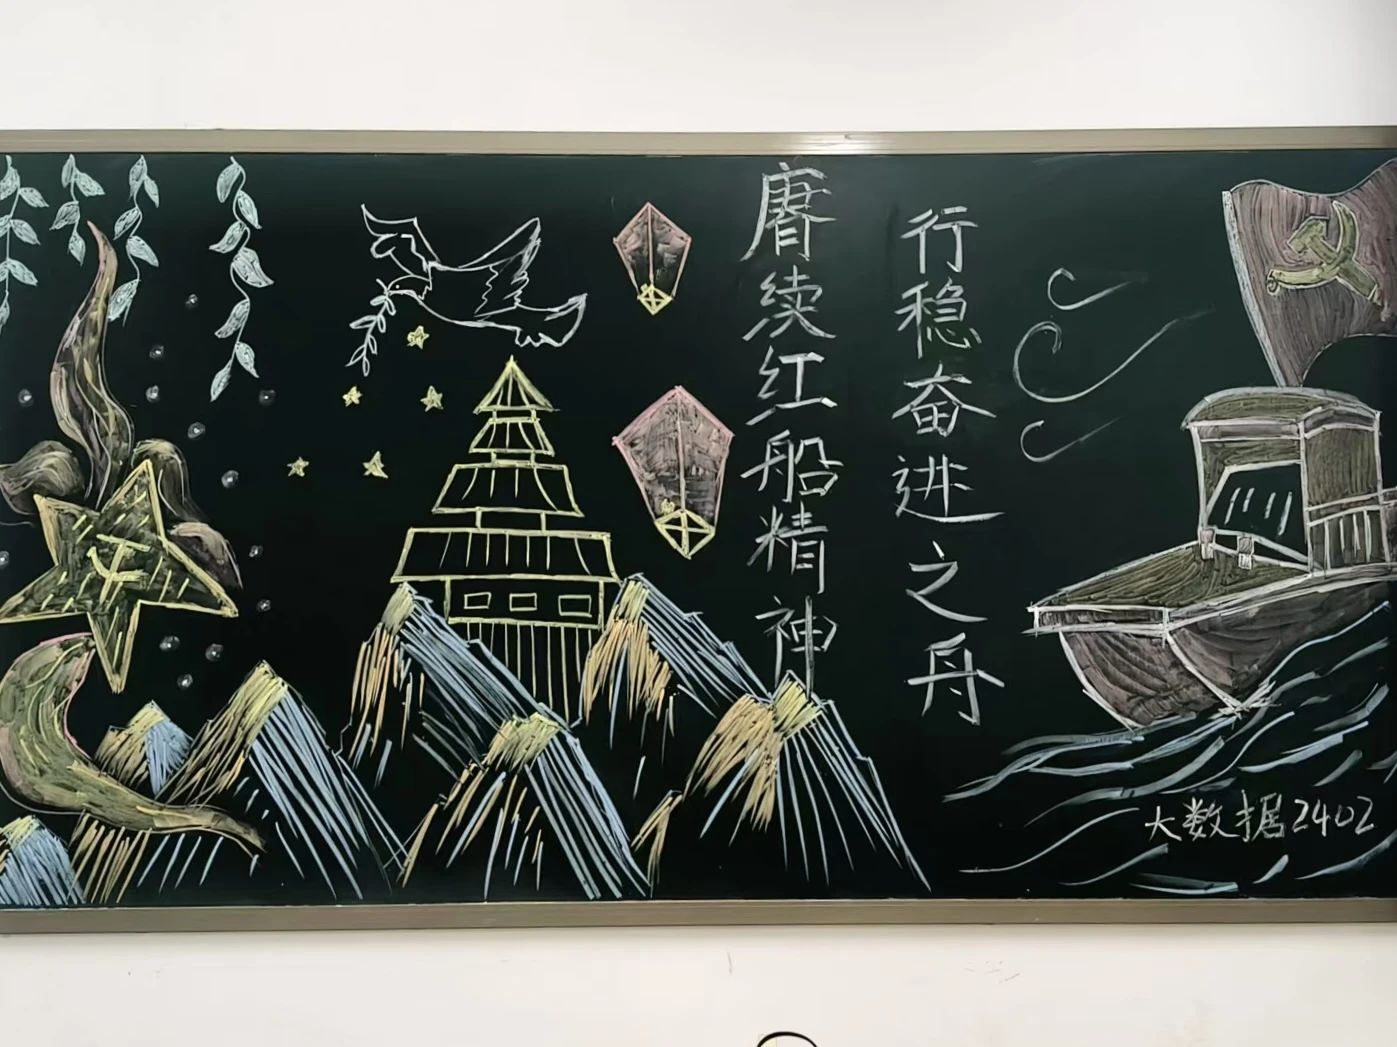 赓续红船精神
行稳奋进之舟
大数据2402